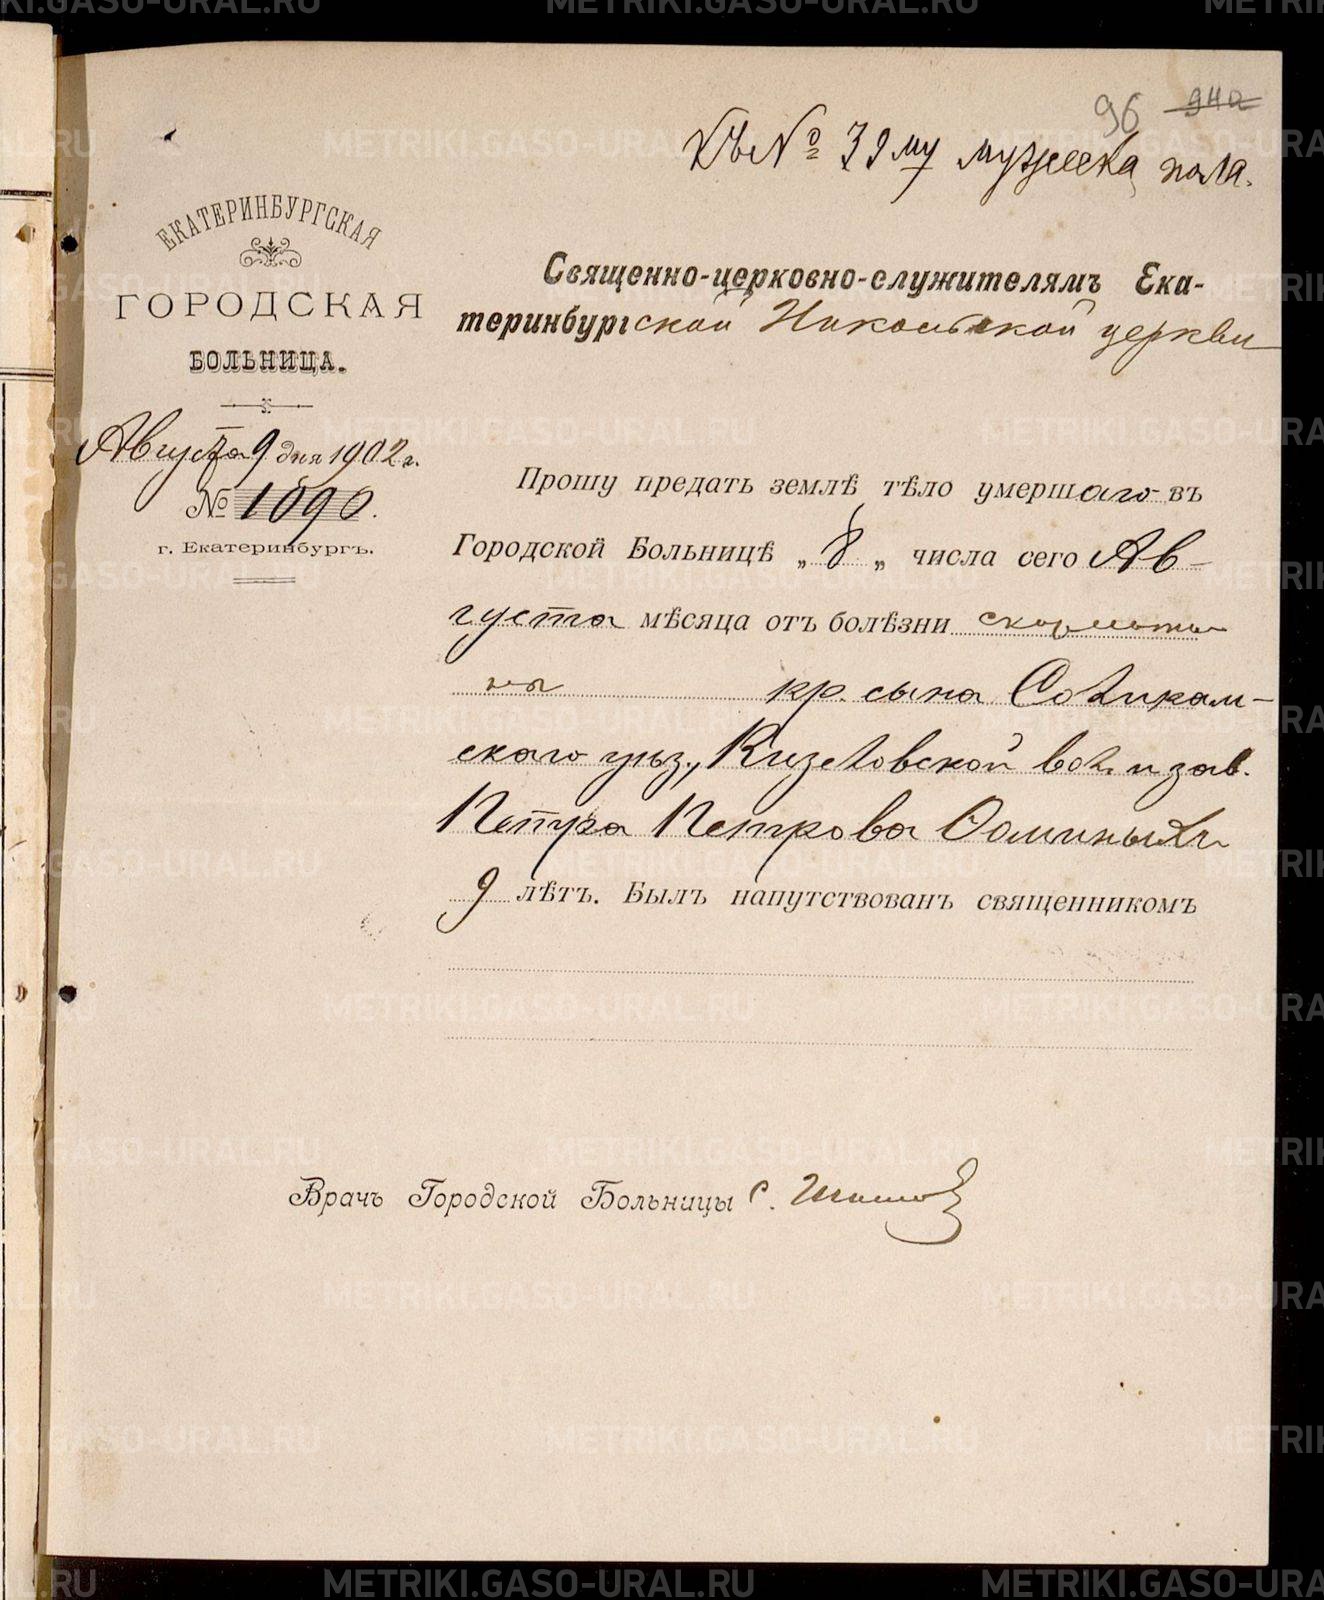 96 940
Къ № 39му мужеска пола.
ЕКАТЕРИНБУРГСКАЯ
ГОРОДСКАЯ
БОЛЬНИЦА.
Августа 9 дня 1902 г.
№ 1090.
г. Екатеринбургъ.
Священно-церковно-служителямъ Ека-
теринбургской Никольской церкви
Прошу предать землѣ тѣло умершаго въ
Городской Больницѣ „ 8 „ числа сего Ав-
густа мѣсяца отъ болѣзни скарлати
на кр. сына Соликам-
скаго уѣз., Кизеловской вол. и зав.
Петра Петрова Ѳоминыхъ
9 лѣтъ. Былъ напутствованъ священникомъ
Врачъ Городской Больницы С.
METRIKI.GASO-URAL.RU